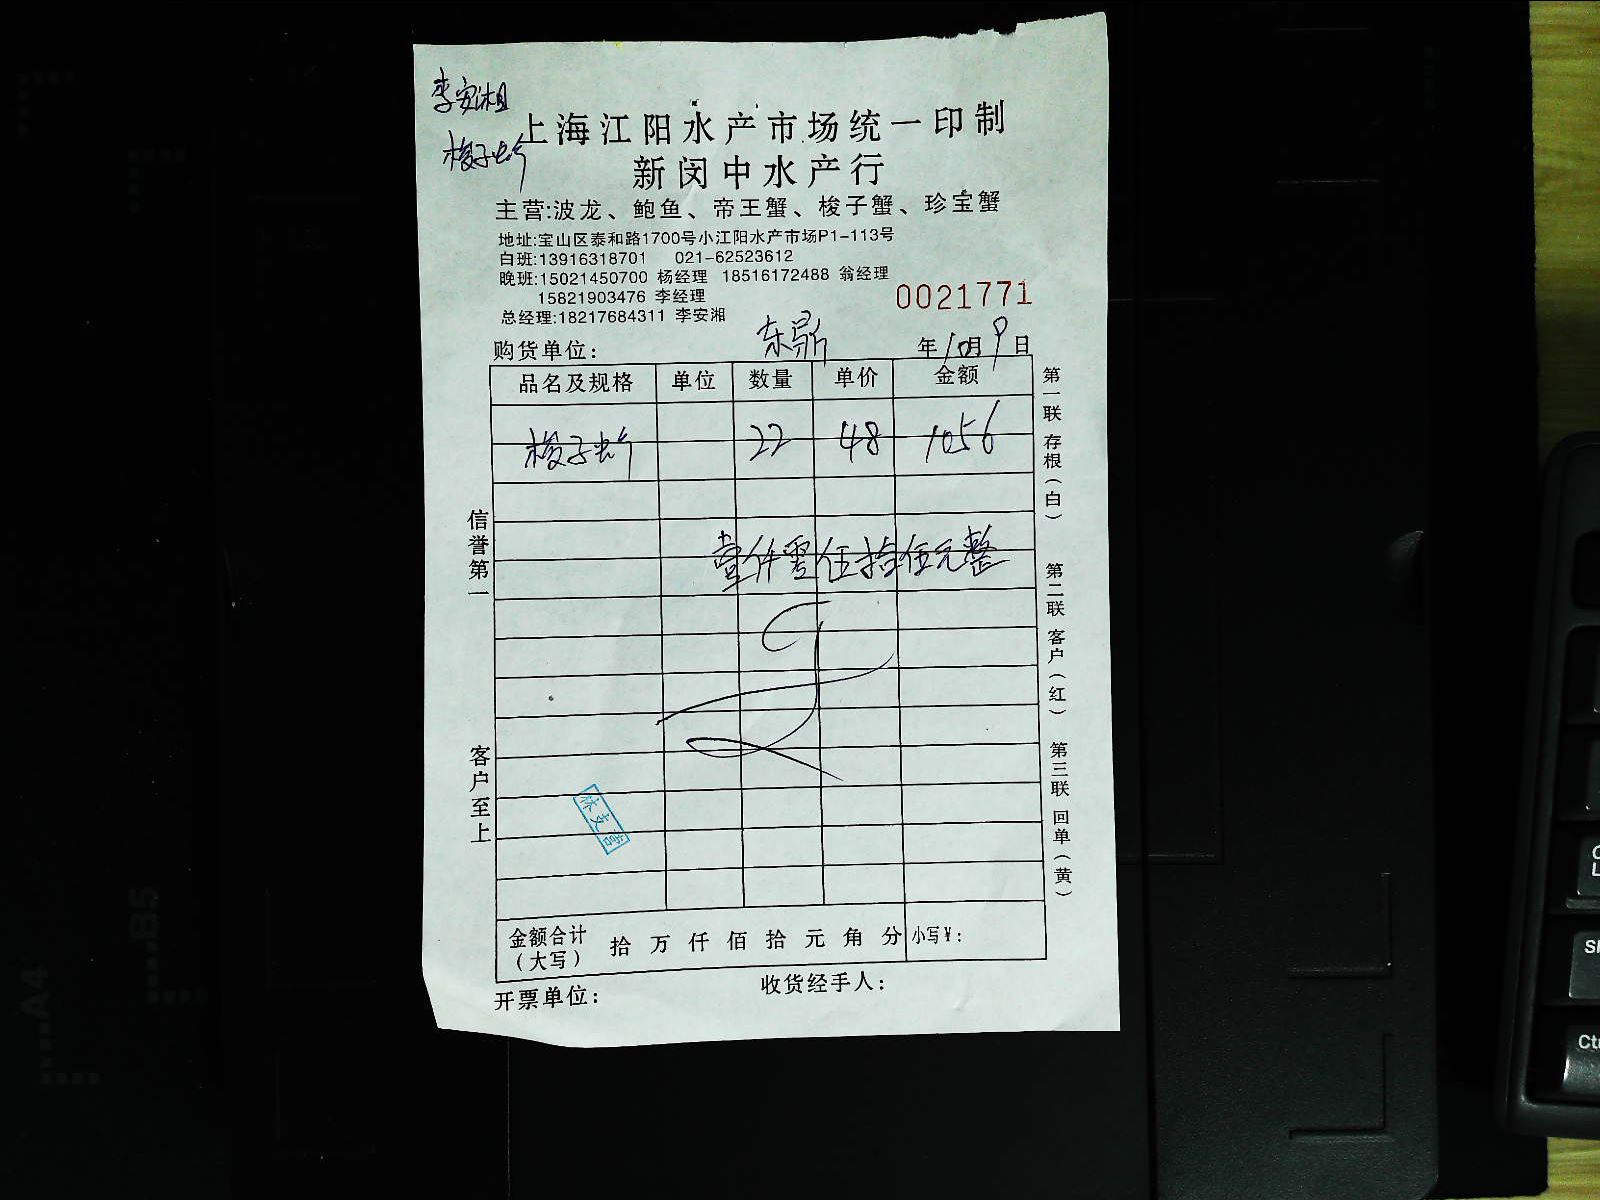 李安湘
梭子蟹
上海江阳水产市场统一印制
新闵中水产行
主营:波龙、鲍鱼、帝王蟹、梭子蟹、珍宝蟹
地址:宝山区泰和路1700号小江阳水产市场P1-113号
白班:13916318701 021-62523612
晚班:15021450700 杨经理 18516172488 翁经理
15821903476 李经理
总经理:18217684311 李安湘
0021771
购货单位: 东鼎 年10月9日
品名及规格 单位 数量 单价 金额
梭子蟹 22 48 1056
壹仟零伍拾伍元整
信誉第一
客户至上
第一联 存根(白)
第二联 客户(红)
第三联 回单(黄)
林支营
金额合计 拾 万 仟 佰 拾 元 角 分 小写¥:
(大写)
开票单位: 收货经手人:
B5
A4
Ctr